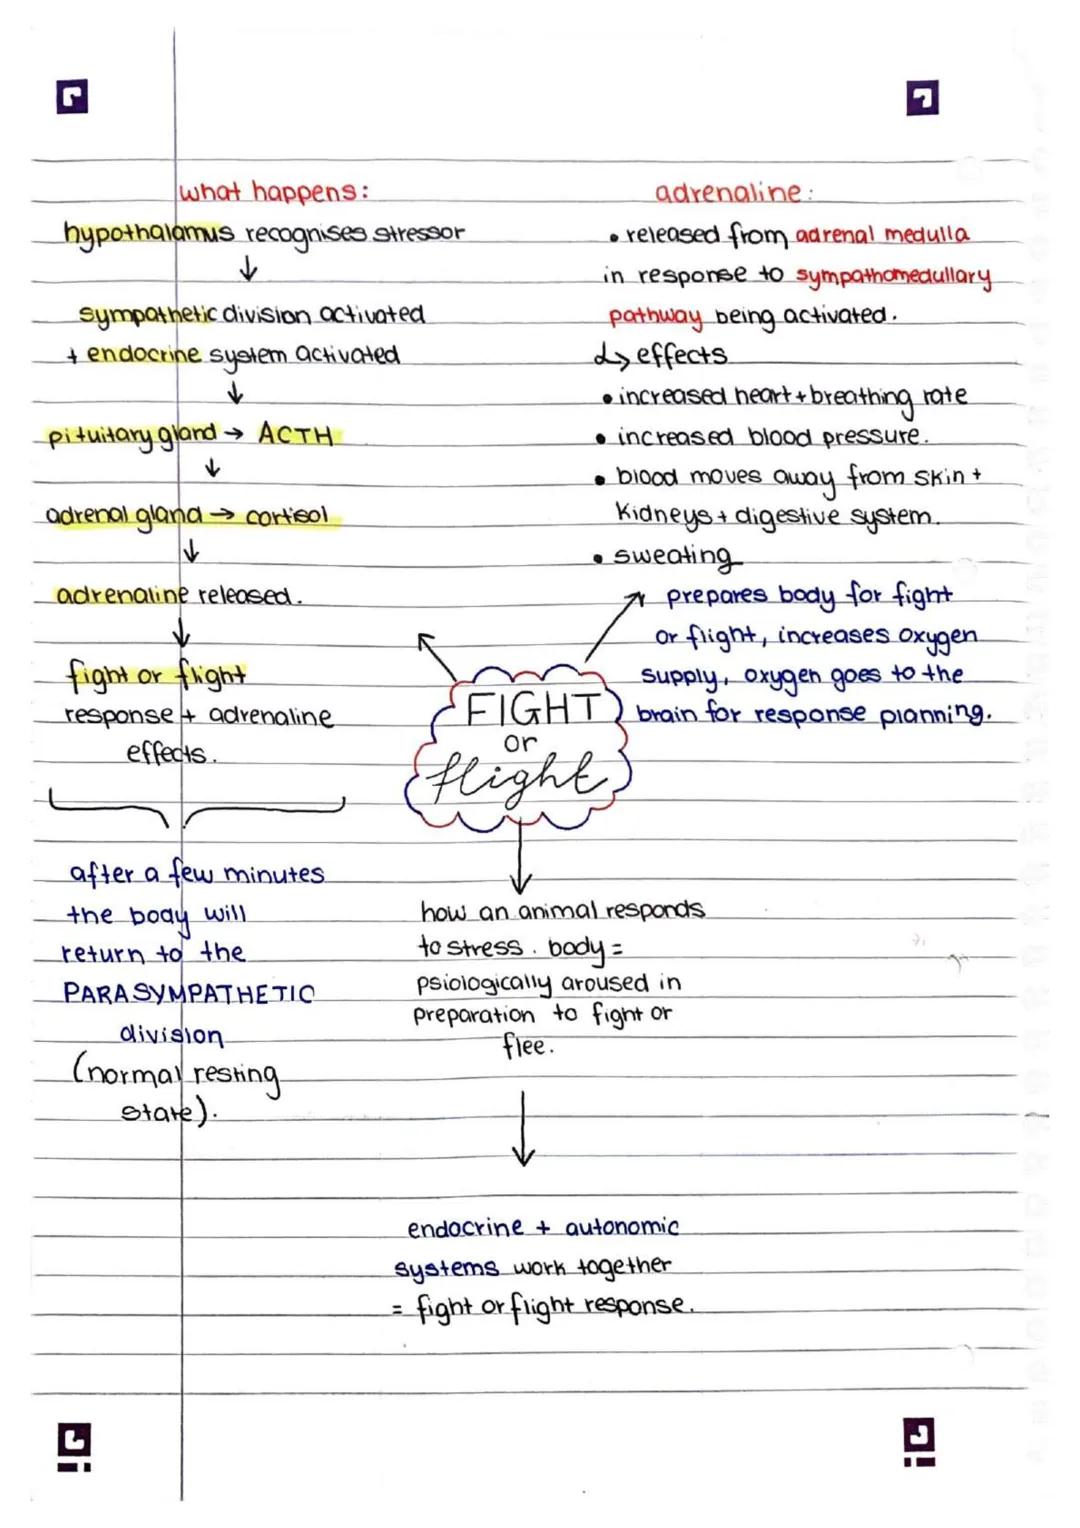 what happens:
hypothalamus recognises stressor
↓
sympathetic division activated
+ endocrine system activated
↓
pituitary gland → ACTH
↓
adrenal gland → cortisol
↓
adrenaline released.
↓
fight or flight
response + adrenaline
effects.
after a few minutes
the body will
return to the
PARASYMPATHETIC
division
(normal resting
state).
adrenaline:
• released from adrenal medulla
in response to sympathomedullary
pathway being activated.
↳ effects
• increased heart + breathing rate
• increased blood pressure.
• blood moves away from skin +
kidneys + digestive system.
• sweating
prepares body for fight
or flight, increases oxygen
supply, oxygen goes to the
brain for response planning.
FIGHT
or
flight
how an animal responds
to stress. body =
psiologically aroused in
preparation to fight or
flee.
endocrine + autonomic
systems work together
= fight or flight response.